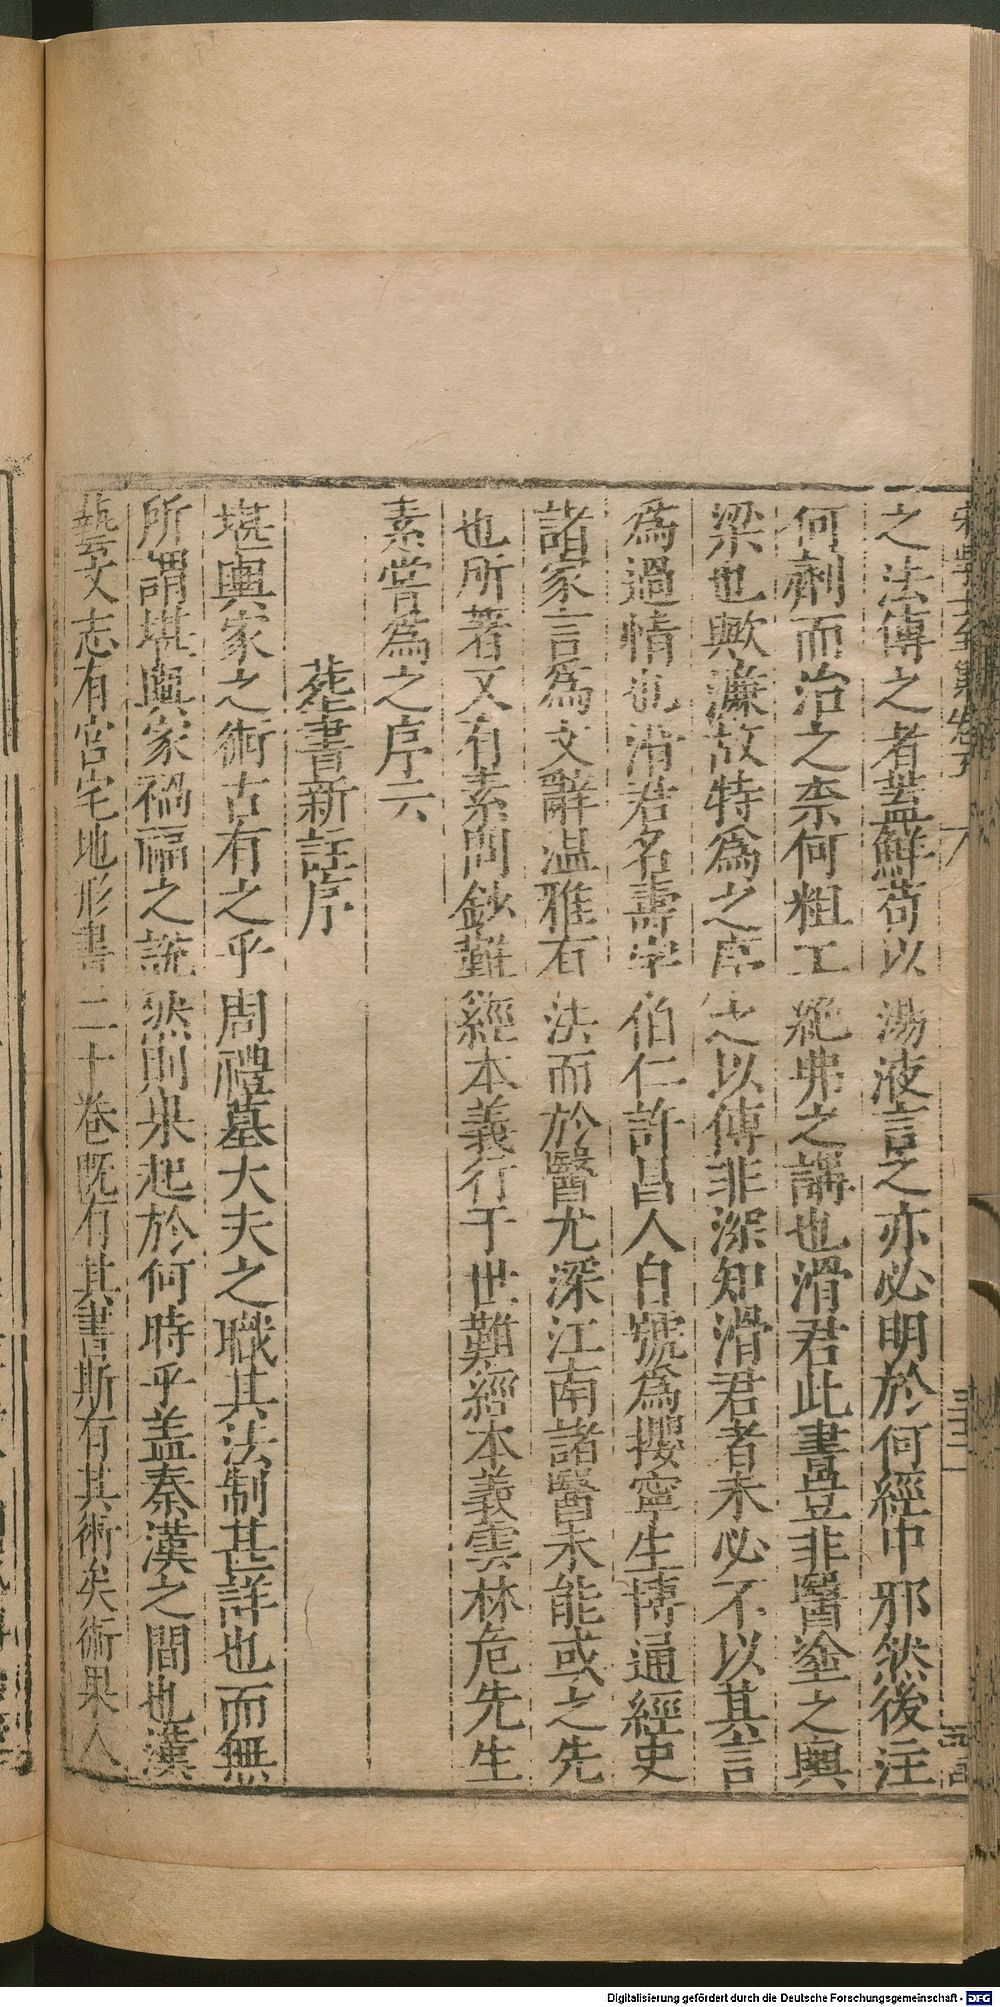 之法傳之者蓋鮮苟以湯液言之亦必明於何經中邪然後注
何劑而治之柰何粗工絶弗之講也滑君此書豈非醫塗之輿
梁也歟濂故特爲之序之以傳非深知滑君者未必不以其言
爲過情也滑君名壽字伯仁許昌人自號爲攖寧生博通經史
諸家言爲文辭温雅有法而於醫尤深江南諸醫未能或之先
也所著又有素問鈔難經本義行于世難經本義雲林危先生
素嘗爲之序云
葬書新註序
堪輿家之術古有之乎周禮墓大夫之職其法制甚詳也而無
所謂堪輿家禍福之說然則果起於何時乎盖秦漢之間也漢
藝文志有宮宅地形書二十卷既有其書斯有其術矣術果人
Digitalisierung gefördert durch die Deutsche Forschungsgemeinschaft - DFG